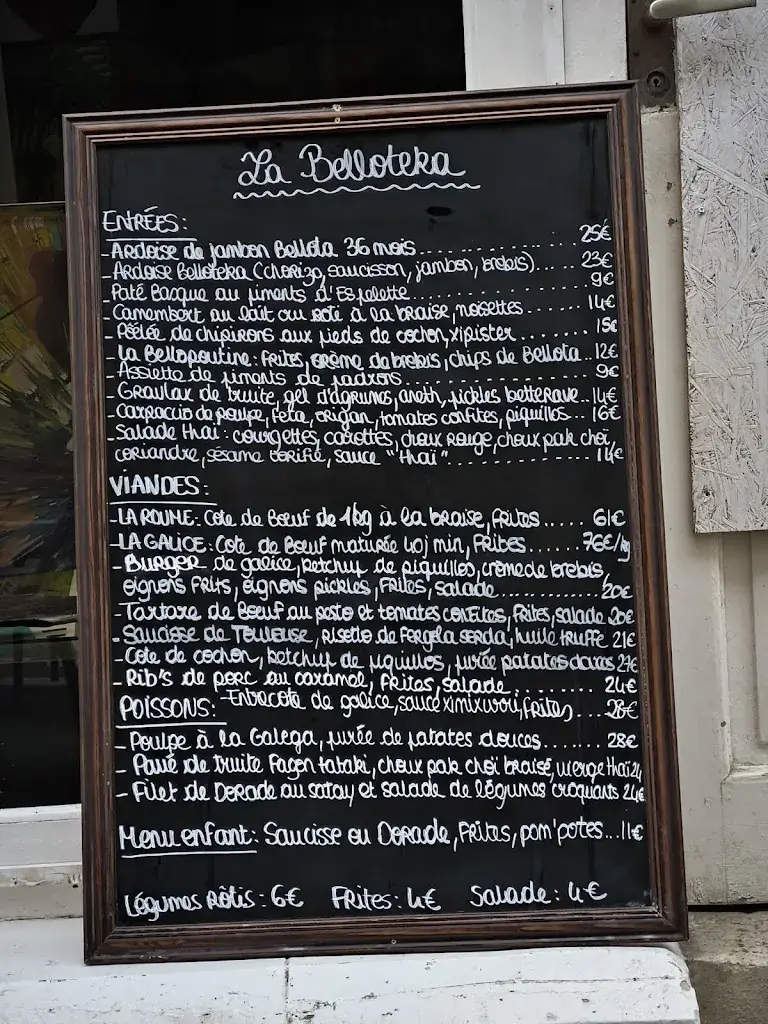 La Belloteka
ENTRÉES:
- Ardoise de jambon Bellota 36 mois.................... 25€
- Ardoise Belloteka (chorizo, saucisson, jambon, brebis)..... 23€
- Paté Basque au piments d'Espelette.................... 9€
- Camembert au lait cru rôti à la braise, noisettes....... 14€
- Pôélée de chipirons aux pieds de cochon, xipister........ 15€
- La Bellopoutine: frites, crème de brebis, chips de Bellota..12€
- Assiette de piments de padrons...................... 9€
- Gravlax de truite, gel d'agrumes, aneth, pickles betterave..14€
- Carpaccio de poulpe, feta, origan, tomates confites, piquillos... 16€
- Salade thaï: courgettes, carottes, choux rouge, choux pak choï,
coriandre, sésame torifié, sauce "thaï".................... 14€
VIANDES:
- LA RHUNE: Cote de Bœuf de 1kg à la braise, frites...... 61€
- LA GALICE: Cote de Bœuf maturée 40j min, Frites....... 76€/kg
- Burger de galice, ketchup de piquillos, crème de brebis,
oignons frits, oignons pickles, frites, salade.............. 20€
- Tartare de Bœuf au pesto et tomates confites, frites, salade 20€
- Saucisse de Toulouse, Risotto de Fergola sarda, huile truffe 21€
- Cote de cochon, ketchup de piquillos, purée patates douces 27€
- Rib's de porc au caramel, frites, salade............ 24€
- Entrecote de galice, sauce ximixurri, frites).... 28€
POISSONS:
- Poulpe à la Galega, purée de patates douces....... 28€
- Pavé de truite façon tataki, choux pak choï braisé, vierge thaï 24
- Filet de Dorade au satay et salade de légumes croquants 24€
Menu enfant: Saucisse ou Dorade, frites, pom'potes...11€
Légumes Rôtis: 6€ Frites: 4€ Salade: 4€